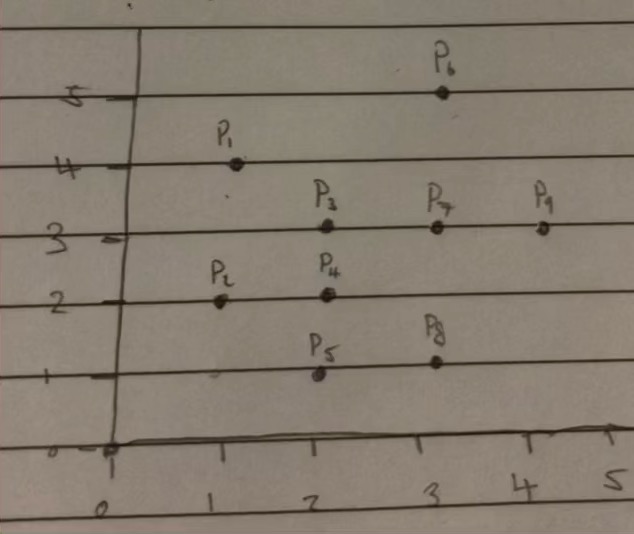 P6
5
P1
4
P3 P7 P9
3
P2 P4
2
P8
P5
1
0
0 1 2 3 4 5